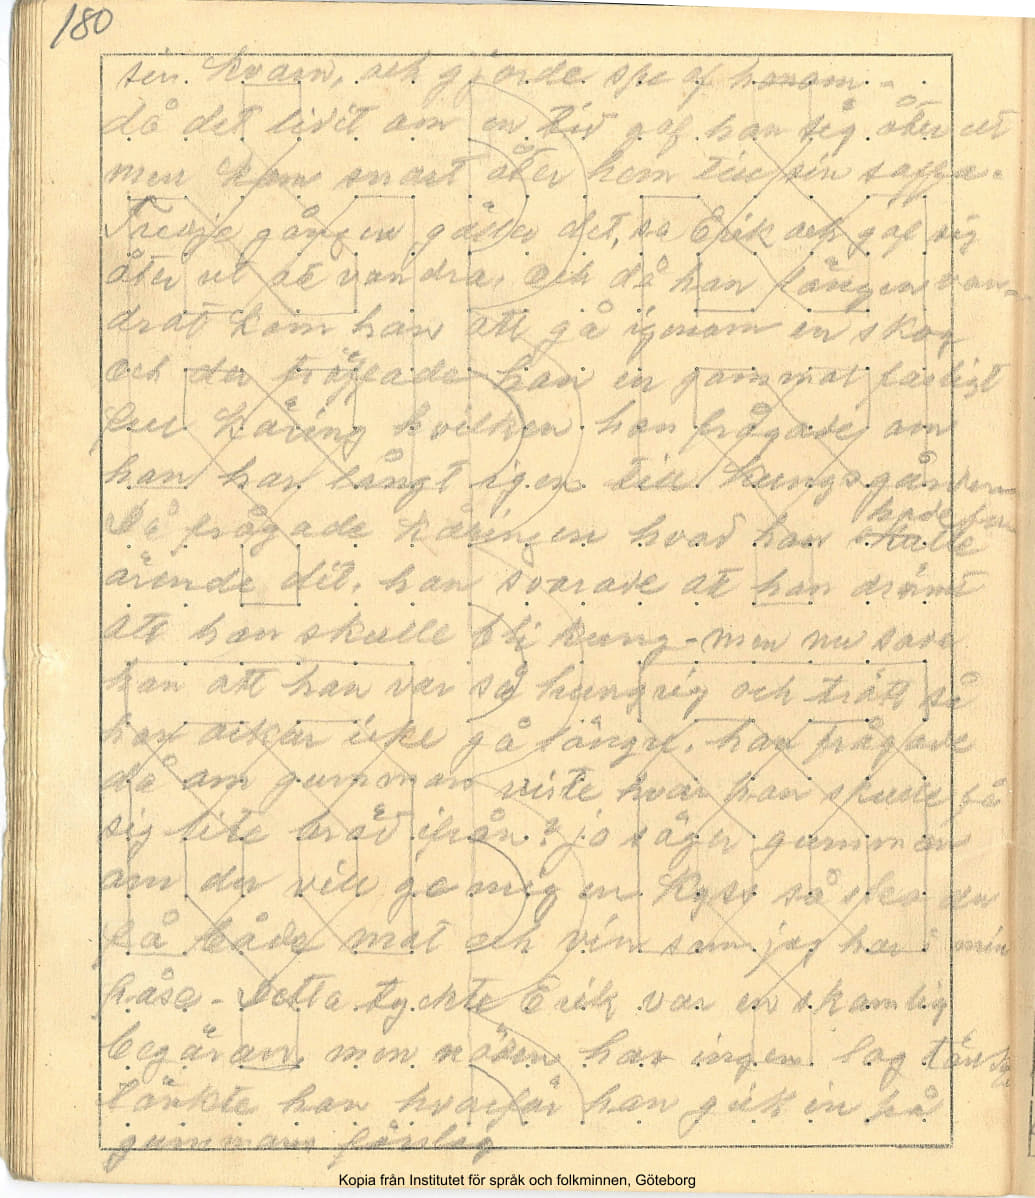 180
sin kvarn, och gjorde spe af honom -
då det lidit om en tid gaf han sig åter ut
men kom snart åter hem till sin soffa.
Tredje gången gäller det, sa Erik och gaf sig
åter ut at vandra, och då han längen van-
drat kom han att gå igenom en skog
och der träffade han en gammal fasligt
ful käring hvilken han frågade om
han har långt igen till kungsgården
Då frågade käringen hvad han hade för
ärende dit, han svarade at han drömt
att han skulle bli kung - men nu sade
han att han var så hungrig och trött så
han orkar icke gå längre, han frågade
då om gumman viste hvar han skulle få
sig lite bröd ifrån? jo säger gumman
om du vill ge mig en kyss så ska du
få både mat och vin som jag har i min
påse - Detta tyckte Erik var en skamlig
begäran, men nöden har ingen lag
tänkte han hvarför han gick in på
gummans förslag
Kopia från Institutet för språk och folkminnen, Göteborg